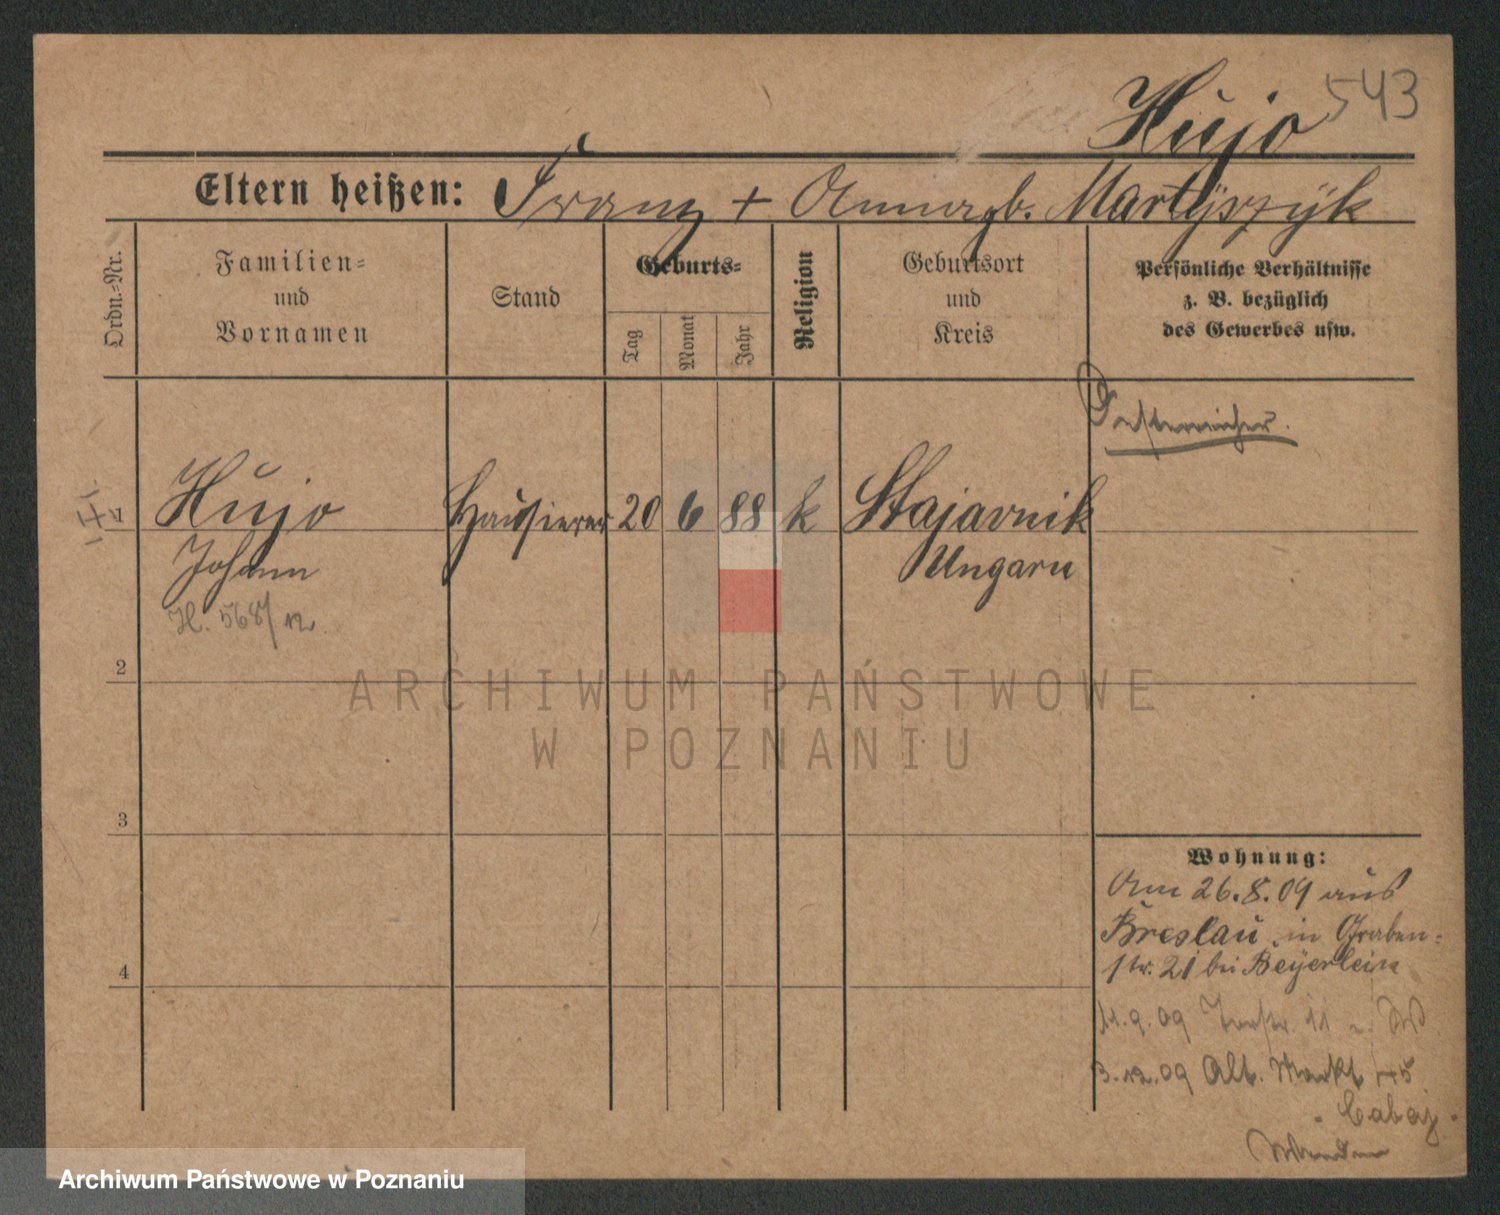 543
Hujo
Eltern heißen: Franz + Anna gb. Martyszyk
Ordn.-Nr.
Familien-
und
Vornamen
Stand
Geburts-
Tag
Monat
Jahr
Religion
Geburtsort
und
Kreis
Persönliche Verhältnisse
z. B. bezüglich
des Gewerbes usw.
Oesterreicher.
1
Hujo Hausierer 20 6 88 k Stajavnik
Johann Ungarn
H. 568/12
2
3
4
Wohnung:
Am 26.8.09 aus
Breslau in Graben-
str. 21 bei Beyerlein
11.9.09 11
3.12.09 Alt. Markt 45
Cabaj
ARCHIWUM PAŃSTWOWE
W POZNANIU
Archiwum Państwowe w Poznaniu